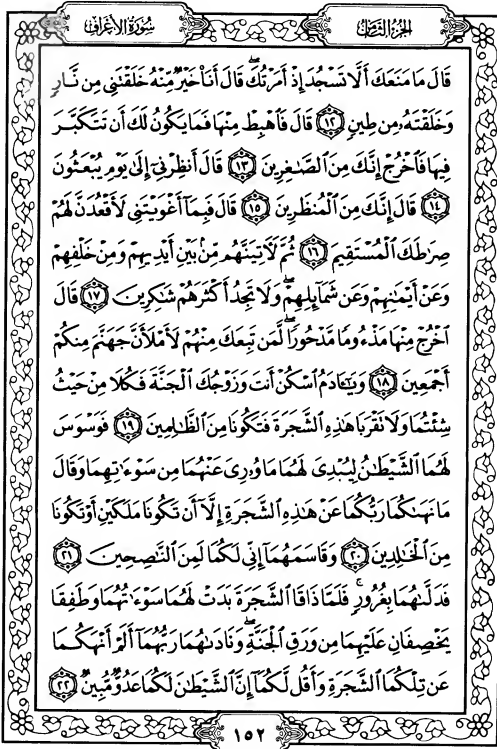 سُورَةُ الأَعْرَافِ
الجُزْءُ الثَّامِنُ
قَالَ مَا مَنَعَكَ أَلَّا تَسْجُدَ إِذْ أَمَرْتُكَ ۖ قَالَ أَنَا۠ خَيْرٌ مِّنْهُ خَلَقْتَنِى مِن نَّارٍ
وَخَلَقْتَهُۥ مِن طِينٍ ﴿١٢﴾ قَالَ فَٱهْبِطْ مِنْهَا فَمَا يَكُونُ لَكَ أَن تَتَكَبَّرَ
فِيهَا فَٱخْرُجْ إِنَّكَ مِنَ ٱلصَّـٰغِرِينَ ﴿١٣﴾ قَالَ أَنظِرْنِىٓ إِلَىٰ يَوْمِ يُبْعَثُونَ
﴿١٤﴾ قَالَ إِنَّكَ مِنَ ٱلْمُنظَرِينَ ﴿١٥﴾ قَالَ فَبِمَآ أَغْوَيْتَنِى لَأَقْعُدَنَّ لَهُمْ
صِرَٰطَكَ ٱلْمُسْتَقِيمَ ﴿١٦﴾ ثُمَّ لَـَٔاتِيَنَّهُم مِّنۢ بَيْنِ أَيْدِيهِمْ وَمِنْ خَلْفِهِمْ
وَعَنْ أَيْمَـٰنِهِمْ وَعَن شَمَآئِلِهِمْ ۖ وَلَا تَجِدُ أَكْثَرَهُمْ شَـٰكِرِينَ ﴿١٧﴾ قَالَ
ٱخْرُجْ مِنْهَا مَذْءُومًا مَّدْحُورًا ۖ لَّمَن تَبِعَكَ مِنْهُمْ لَأَمْلَأَنَّ جَهَنَّمَ مِنكُمْ
أَجْمَعِينَ ﴿١٨﴾ وَيَـٰٓـَٔادَمُ ٱسْكُنْ أَنتَ وَزَوْجُكَ ٱلْجَنَّةَ فَكُلَا مِنْ حَيْثُ
شِئْتُمَا وَلَا تَقْرَبَا هَـٰذِهِ ٱلشَّجَرَةَ فَتَكُونَا مِنَ ٱلظَّـٰلِمِينَ ﴿١٩﴾ فَوَسْوَسَ
لَهُمَا ٱلشَّيْطَـٰنُ لِيُبْدِىَ لَهُمَا مَا وُۥرِىَ عَنْهُمَا مِن سَوْءَٰتِهِمَا وَقَالَ
مَا نَهَىٰكُمَا رَبُّكُمَا عَنْ هَـٰذِهِ ٱلشَّجَرَةِ إِلَّآ أَن تَكُونَا مَلَكَيْنِ أَوْ تَكُونَا
مِنَ ٱلْخَـٰلِدِينَ ﴿٢٠﴾ وَقَاسَمَهُمَآ إِنِّى لَكُمَا لَمِنَ ٱلنَّـٰصِحِينَ ﴿٢١﴾
فَدَلَّىٰهُمَا بِغُرُورٍ ۚ فَلَمَّا ذَاقَا ٱلشَّجَرَةَ بَدَتْ لَهُمَا سَوْءَٰتُهُمَا وَطَفِقَا
يَخْصِفَانِ عَلَيْهِمَا مِن وَرَقِ ٱلْجَنَّةِ ۖ وَنَادَىٰهُمَا رَبُّهُمَآ أَلَمْ أَنْهَكُمَا
عَن تِلْكُمَا ٱلشَّجَرَةِ وَأَقُل لَّكُمَآ إِنَّ ٱلشَّيْطَـٰنَ لَكُمَا عَدُوٌّ مُّبِينٌ ﴿٢٢﴾
١٥٢